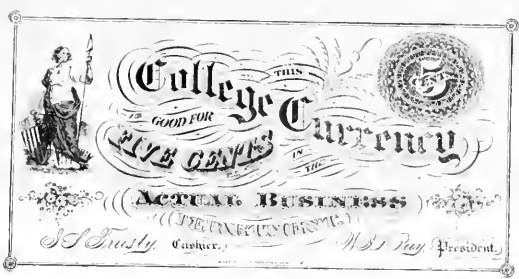 College Currency
THIS
IS GOOD FOR
FIVE CENTS
IN THE
5
CENTS
ACTUAL BUSINESS
DEPARTMENT
I. S. Trusty, Cashier.
President.